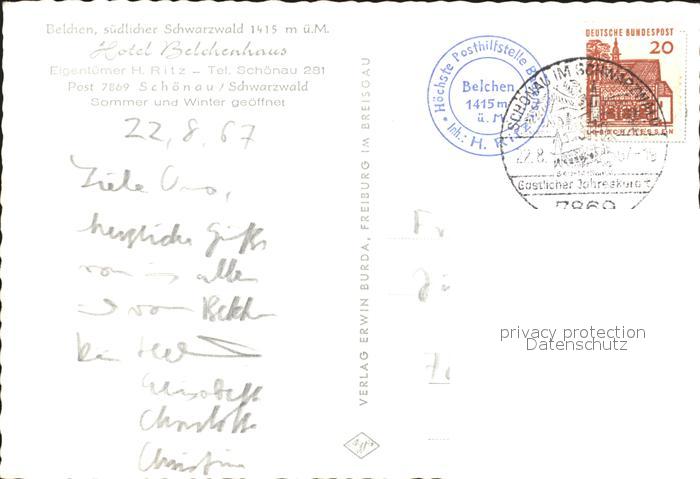 Belchen, südlicher Schwarzwald 1415 m ü.M.
Hotel Belchenhaus
Eigentümer H. Ritz – Tel. Schönau 281
Post 7869 Schönau / Schwarzwald
Sommer und Winter geöffnet
22.8.67
Liebe Oma,
herzliche Grüße
von uns allen
vom Belchen
Elisabeth
Charlotte
Christine
VERLAG ERWIN BURDA, FREIBURG IM BREISGAU
Höchste Posthilfstelle
Belchen
1415 m
ü. M.
Inh.: H. Ritz
DEUTSCHE BUNDESPOST
20
LORSCH/HESSEN
SCHÖNAU IM SCHWARZWALD
22.8.67-18
Gastlicher Jahreskurort
7869
privacy protection
Datenschutz